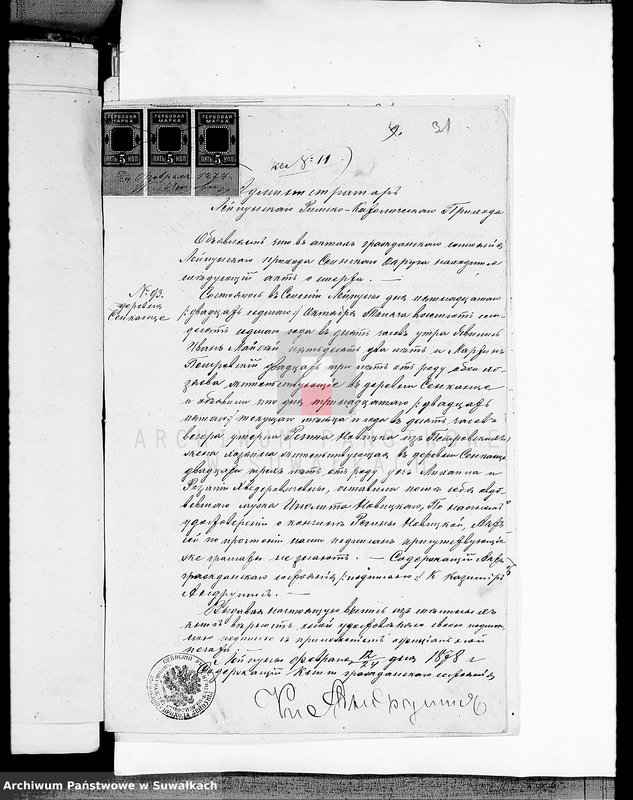 9. 31
ГЕРБОВАЯ МАРКА ГЕРБОВАЯ МАРКА ГЕРБОВАЯ МАРКА
ПЯТЬ 5 КОП. ПЯТЬ 5 КОП. ПЯТЬ 5 КОП.
№ 11
Администраторъ
Лейпунскаго Римско-Католическаго Прихода
Объявляетъ что въ актахъ гражданскаго состоянія
Лейпунскаго прихода Сейнскаго округа находится
слѣдующій актъ о смерти. —
№ 93.
деревня
Сенканце
Состоялось въ Лейпуны дня пятнадцатаго
/двадцать седьмаго/ Октября тысяча восемьсотъ семь
десятъ седьмаго года въ десять часовъ утра Явились
Иванъ пятьдесятъ два лѣтъ и Мартинъ
Петровскій двадцать три лѣтъ отъ роду оба хо
зяева жительствующіе въ деревнѣ Сенканце
и объявили что дня тринадцатаго /двадцать
пятаго/ текущаго мѣсяца и года въ десять часовъ
вечера умерла Регина Новицка изъ Петровскихъ
жена хозяина жительствующая въ деревнѣ Сенканце
двадцати трехъ лѣтъ отъ роду дочь Михаила и
Розаліи оставила послѣ себя овдо
вѣвшаго мужа Ипполита Новицкаго, По настояще
удостовѣреніи о кончинѣ Регины Новицкой, Актъ
сей по прочтеніи нами подписанъ присутствующіе
же грамоты не знаютъ. — Содержащій Акты
гражданскаго состоянія /подписано/ К. Казиміръ
Андрушис —
Выдавая настоящую выпись изъ
вѣрность сей удостовѣряю своею подписью
съ приложеніемъ оффиціальной
печати.
Лейпуны Февраля 12/24 дня 1878 г.
Содержащій Акты гражданскаго состоянія
Кс. Андрушис
Archiwum Państwowe w Suwałkach